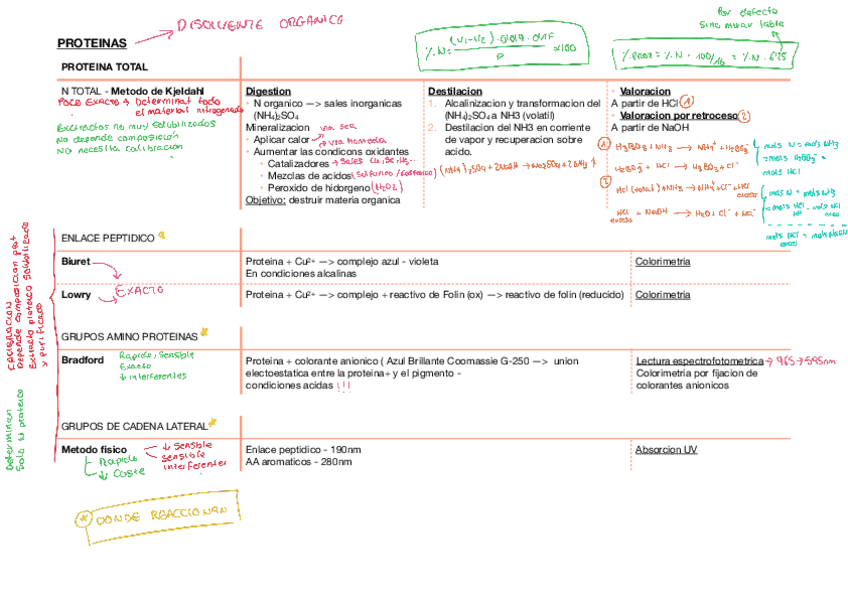 DISOLVENTE ORGANICO
Por defecto
sino mirar tabla
PROTEINAS
%N = (V1-V2) · 0'014 · 0'1F / P x100
% PROT = % N · 100/16 = % N · 6'25
PROTEINA TOTAL
N TOTAL - Metodo de Kjeldahl
POCO EXACTO → Determinat todo
el material nitrogenado
Extractos no muy solubilizados
NO depende composición
NO necesita calibración
Digestion
• N organico —> sales inorganicas
(NH₄)₂SO₄
Mineralizacion via seca
• Aplicar calor → via humeda
• Aumentar las condicons oxidantes
• Catalizadores → Sales Cu, Se, Hg...
• Mezclas de acidos (sulfurico/fosforico)
• Peroxido de hidorgeno (H2O2)
Objetivo: destruir materia organica
Destilacion
1. Alcalinizacion y transformacion del
(NH₄)₂SO₄ a NH3 (volatil)
2. Destilacion del NH3 en corriente
de vapor y recuperacion sobre
acido.
(NH4)2SO4 + 2NaOH → Na2SO4 + 2NH3 ↑
• Valoracion
A partir de HCl ①
• Valoracion por retroceso ②
A partir de NaOH
① H3BO3 + NH3 → NH4+ + H2BO3-
H2BO3- + HCl → H3BO3 + Cl-
mols N = mols NH3
= mols H2BO3- =
mols HCl
② HCl (total) + NH3 → NH4+ + Cl- + HCl
exceso
HCl + NaOH → H2O + Cl- + Na+
exceso
mols N = mols NH3
= mols HCl - mols HCl
mols HCl = mols NaOH
exceso
CALIBRACION
Depende composicion prot
Extracto proteico solubilizado
y purificado
ENLACE PEPTIDICO *
Biuret
Proteina + Cu²⁺ —> complejo azul - violeta
En condiciones alcalinas
Colorimetria
EXACTO
Lowry
Proteina + Cu²⁺ —> complejo + reactivo de Folin (ox) —> reactivo de folin (reducido)
Colorimetria
GRUPOS AMINO PROTEINAS *
Bradford
Rapido, Sensible
Exacto
↓ interferentes
Proteina + colorante anionico ( Azul Brillante Coomassie G-250 —> union
electoestatica entre la proteina+ y el pigmento -
condiciones acidas !!!
Lectura espectrofotometrica → 465 → 595nm
Colorimetria por fijacion de
colorantes anionicos
Determinan
solo N proteico
GRUPOS DE CADENA LATERAL *
Metodo fisico
↓ Sensible
sensible
interferentes
Rapido
↓ Coste
Enlace peptidico - 190nm
AA aromaticos - 280nm
Absorcion UV
* DONDE REACCIONAN